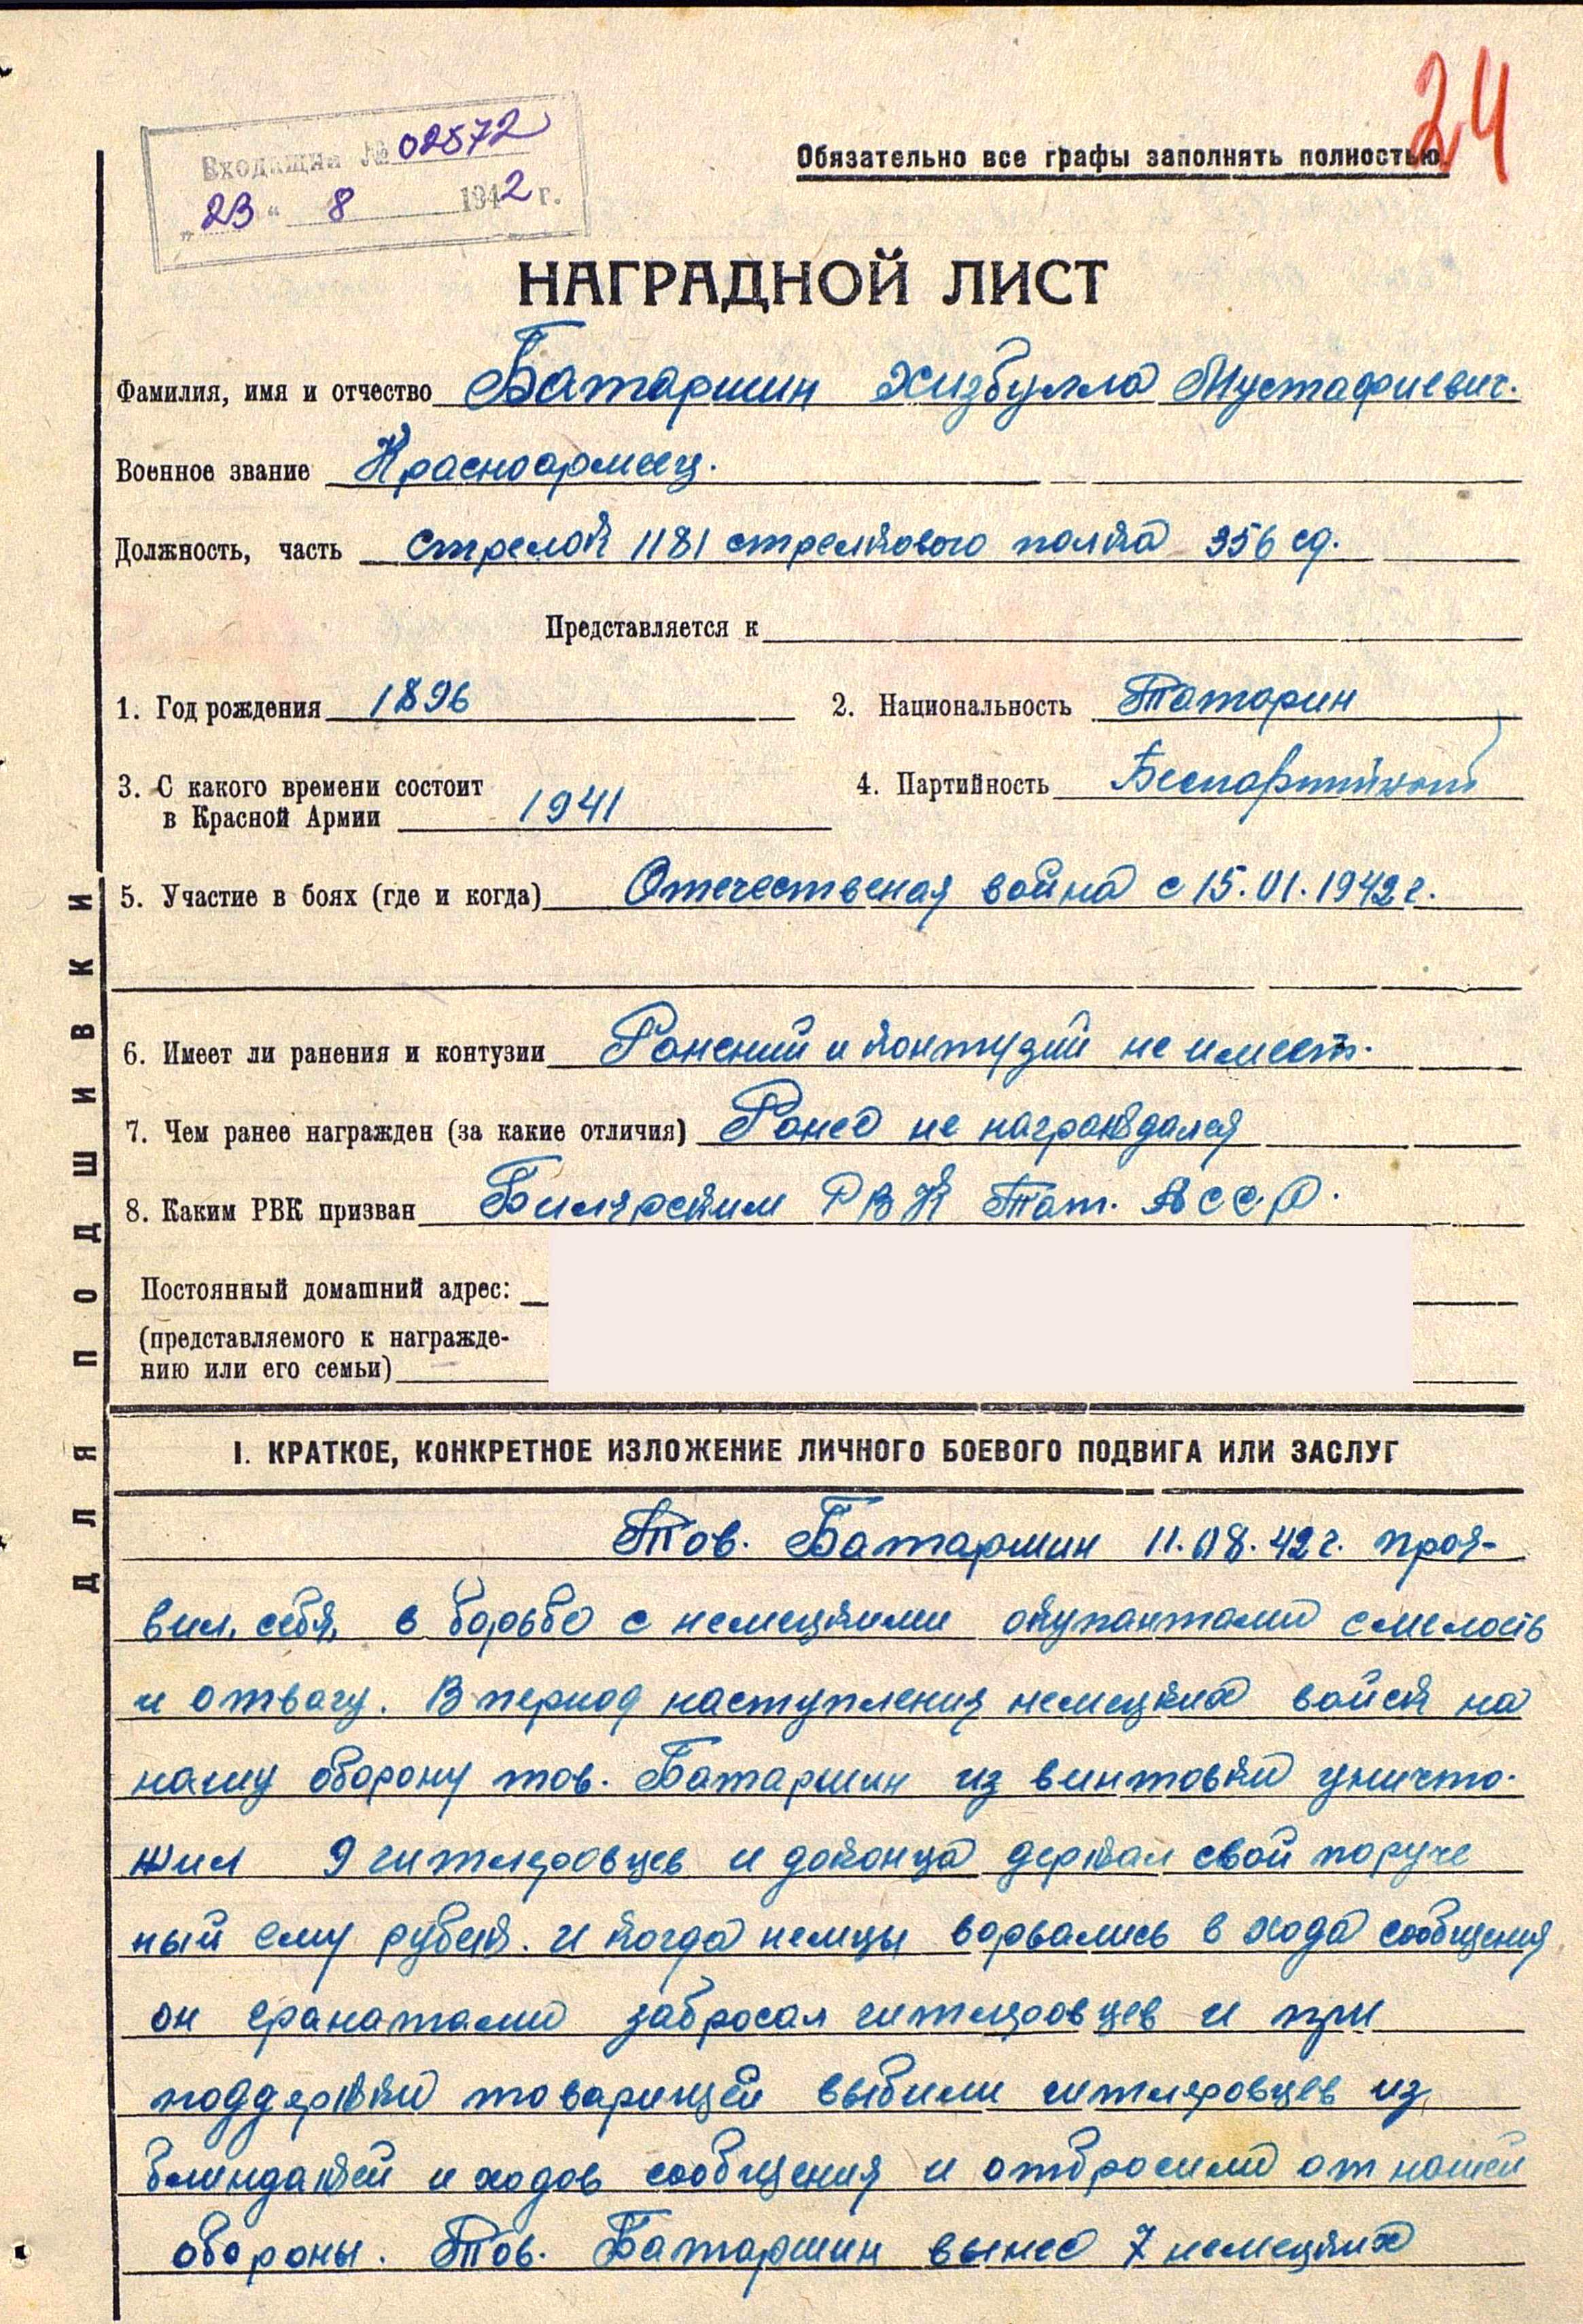 24
Входящий № 02572
„23“ 8 1942 г.
Обязательно все графы заполнять полностью.
НАГРАДНОЙ ЛИСТ
Фамилия, имя и отчество Батаршин Хизбулла Мустафиевич.
Военное звание Красноармеец.
Должность, часть стрелок 1181 стрелкового полка 356 сд.
Представляется к
1. Год рождения 1896 2. Национальность Татарин
3. С какого времени состоит
в Красной Армии 1941
4. Партийность Беспартийный
5. Участие в боях (где и когда) Отечественая война с 15.01.1942 г.
6. Имеет ли ранения и контузии Ранений и контузий не имеет.
7. Чем ранее награжден (за какие отличия) Ранее не награждался
8. Каким РВК призван Билярским РВК Тат. АССР.
Постоянный домашний адрес:
(представляемого к награжде-
нию или его семьи)
ДЛЯ ПОДШИВКИ
I. КРАТКОЕ, КОНКРЕТНОЕ ИЗЛОЖЕНИЕ ЛИЧНОГО БОЕВОГО ПОДВИГА ИЛИ ЗАСЛУГ
Тов. Батаршин 11.08.42 г. проя-
вил, себя, в борьбе с немецкими окупантами смелость
и отвагу. В период наступления немецких войск на
нашу оборону тов. Батаршин из винтовки уничто-
жил 9 гитлеровцев и доконца держал свой поруче
ный ему рубеж. и когда немцы ворвались в хода сообщения
он гранатами забросал гитлеровцев и при
поддержки товарищей выбили гитлеровцев из
блиндажей и ходов сообщения и отбросили от нашей
обороны. Тов. Батаршин вынес 7 немецких